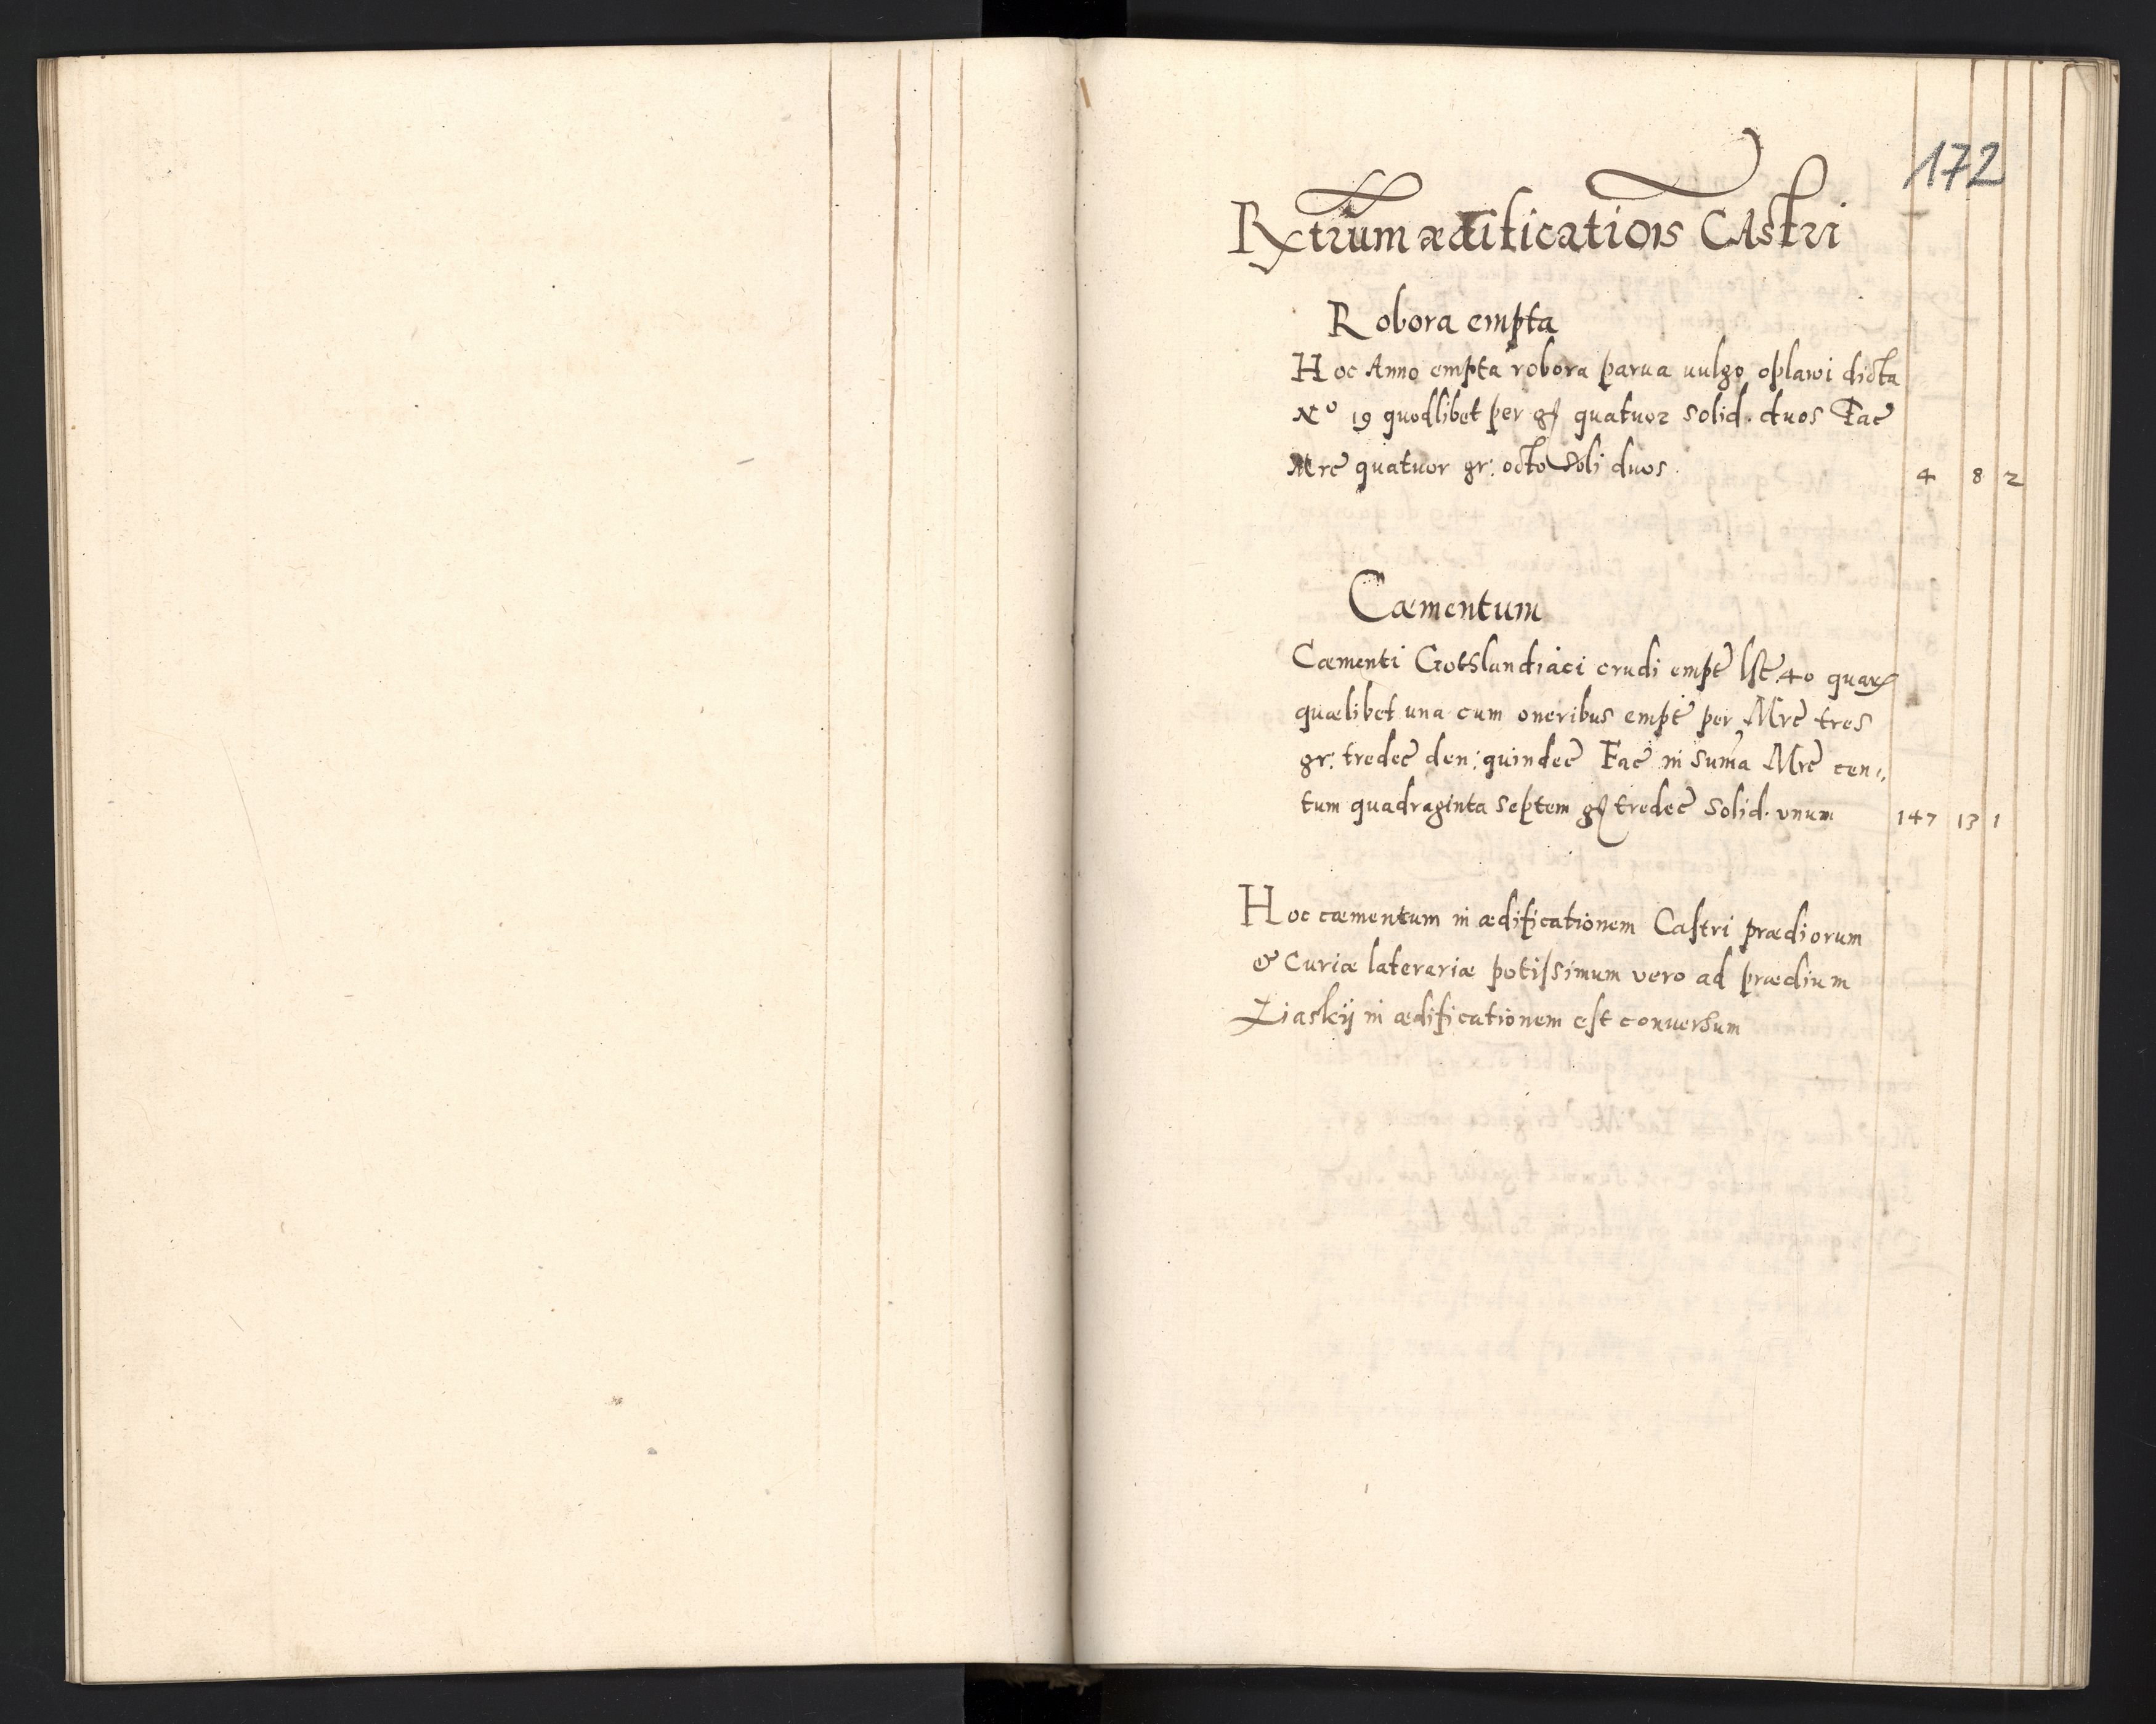 172
Rxtrum ædificatiois CAstri
Robora empta
Hoc Anno empta robora parua uulgo oplawi dicta
No 19 quodlibet per gr quatuor solid. duos Fac
Mrc quatuor gr: octo Soli duos. 4 8 2
Cæmentum
Cæmenti Gotslandiaci crudi empt lst 40 quar
quælibet una cum oneribus empt per Mrc tres
gr: tredec den: quindec Fac in Suma Mrc cen„
tum quadraginta septem gr tredec solid. vnum 147 13 1
Hoc cæmentum in ædificationem Castri prædiorum
& Curiæ laterariæ potissimum vero ad prædium
Liaskij in ædificationem est conuersum